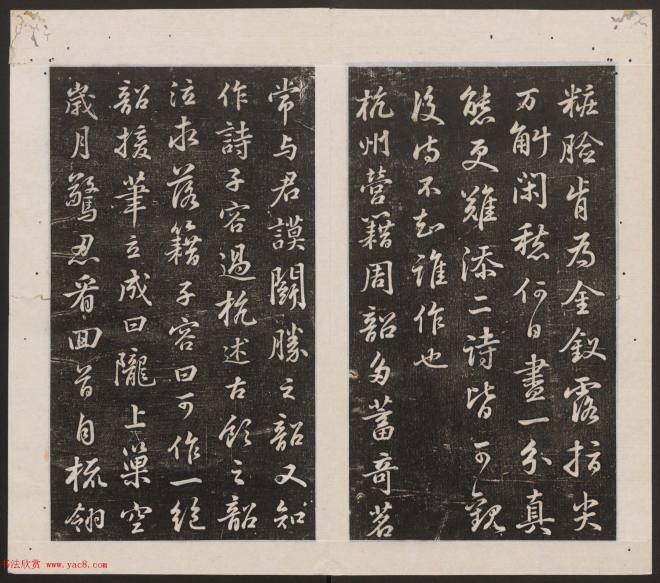 粧臉肯為金釵露指尖
万斛閑愁何日盡一分真
態更難添二詩皆可觀
後詩不知誰作也
杭州營籍周韶多蓄奇茗
常与君謨鬭勝之韶又知
作詩子容過杭述古飲之韶
泣求落籍子容曰可作一絕
韶援筆立成曰隴上巢空
歲月驚忍看迴首自梳翎
书法欣赏 www.yac8.com